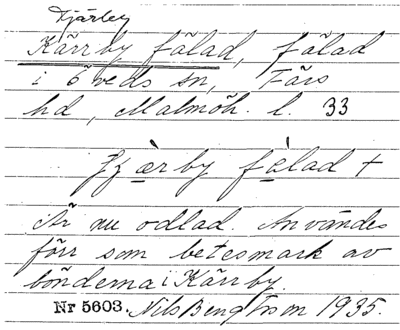 Tjärley
Kärrby fälad, fälad
i Öveds sn, Färs
hd, Malmöh. l. 33
by fèlad +
Är nu odlad. Användes
förr som betesmark av
bönderna i Kärrby.
Nr 5603. Nils Bengtsson 1935.